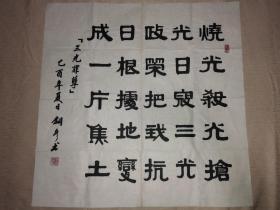 燒光殺光搶
光日寇三光
政策把我抗
日根據地變
成一片焦土
「三光罪孽」
乙酉年夏日 书